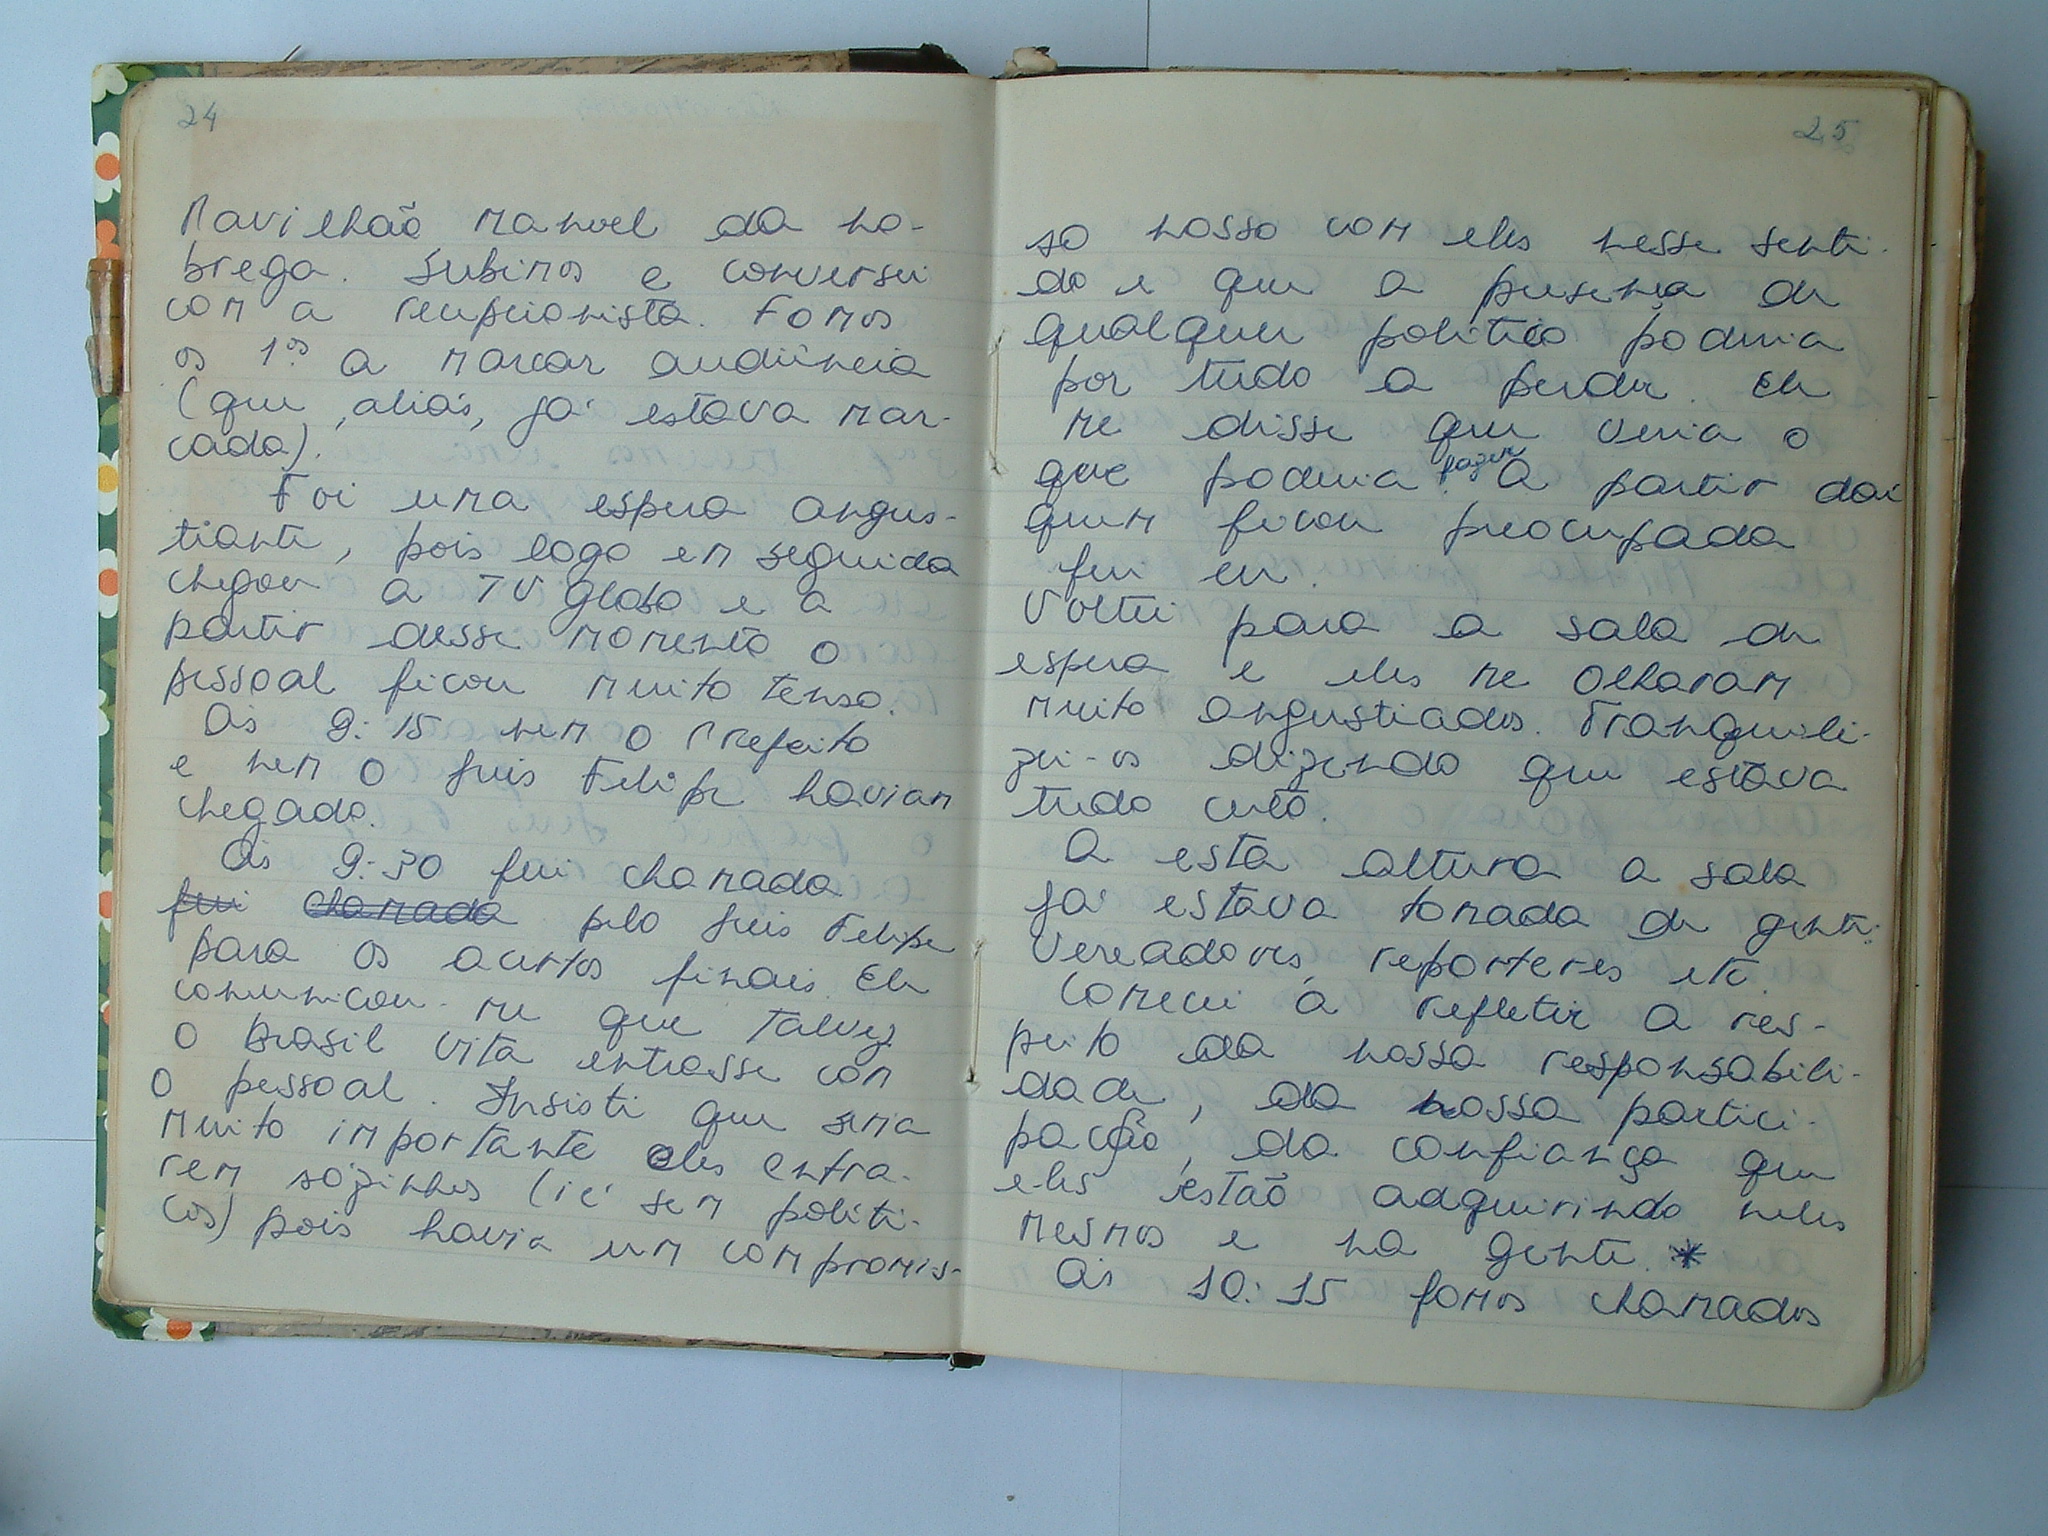 24
Pavilhão Manoel da No-
brega. Subimos e conversei
com a recepcionista. Fomos
os 1ºs a marcar audiência
(que, aliás, já estava mar-
cada).
Foi uma espera angus-
tiante, pois logo em seguida
chegou a TV Globo e a
partir desse momento o
pessoal ficou muito tenso.
Às 9:15 nem o Prefeito
e nem o Luis Felipe haviam
chegado.
Às 9:30 fui chamada
fui chamada pelo Luis Felipe
para os acertos finais. Ele
comunicou-me que talvez
o Brasil Vita entrasse com
o pessoal. Insisti que seria
muito importante eles entra-
rem sózinhos (ié sem políti-
cos) pois havia um compromis-
25
so nosso com eles nesse senti-
do e que a presença de
qualquer político poderia
por tudo a perder. Ele
me disse que veria o
que poderia fazer. A partir daí
quem ficou preocupada
fui eu.
Voltei para a sala de
espera e eles me olharam
muito angustiados. Tranquili-
zei-os dizendo que estava
tudo certo.
A esta altura a sala
já estava tomada de gente:
vereadores, reporteres etc.
Comecei a refletir a res-
peito da nossa responsabili-
dade, da nossa partici-
pação, da confiança que
eles estão adquirindo neles
mesmos e na gente. *
Às 10:15 fomos chamados